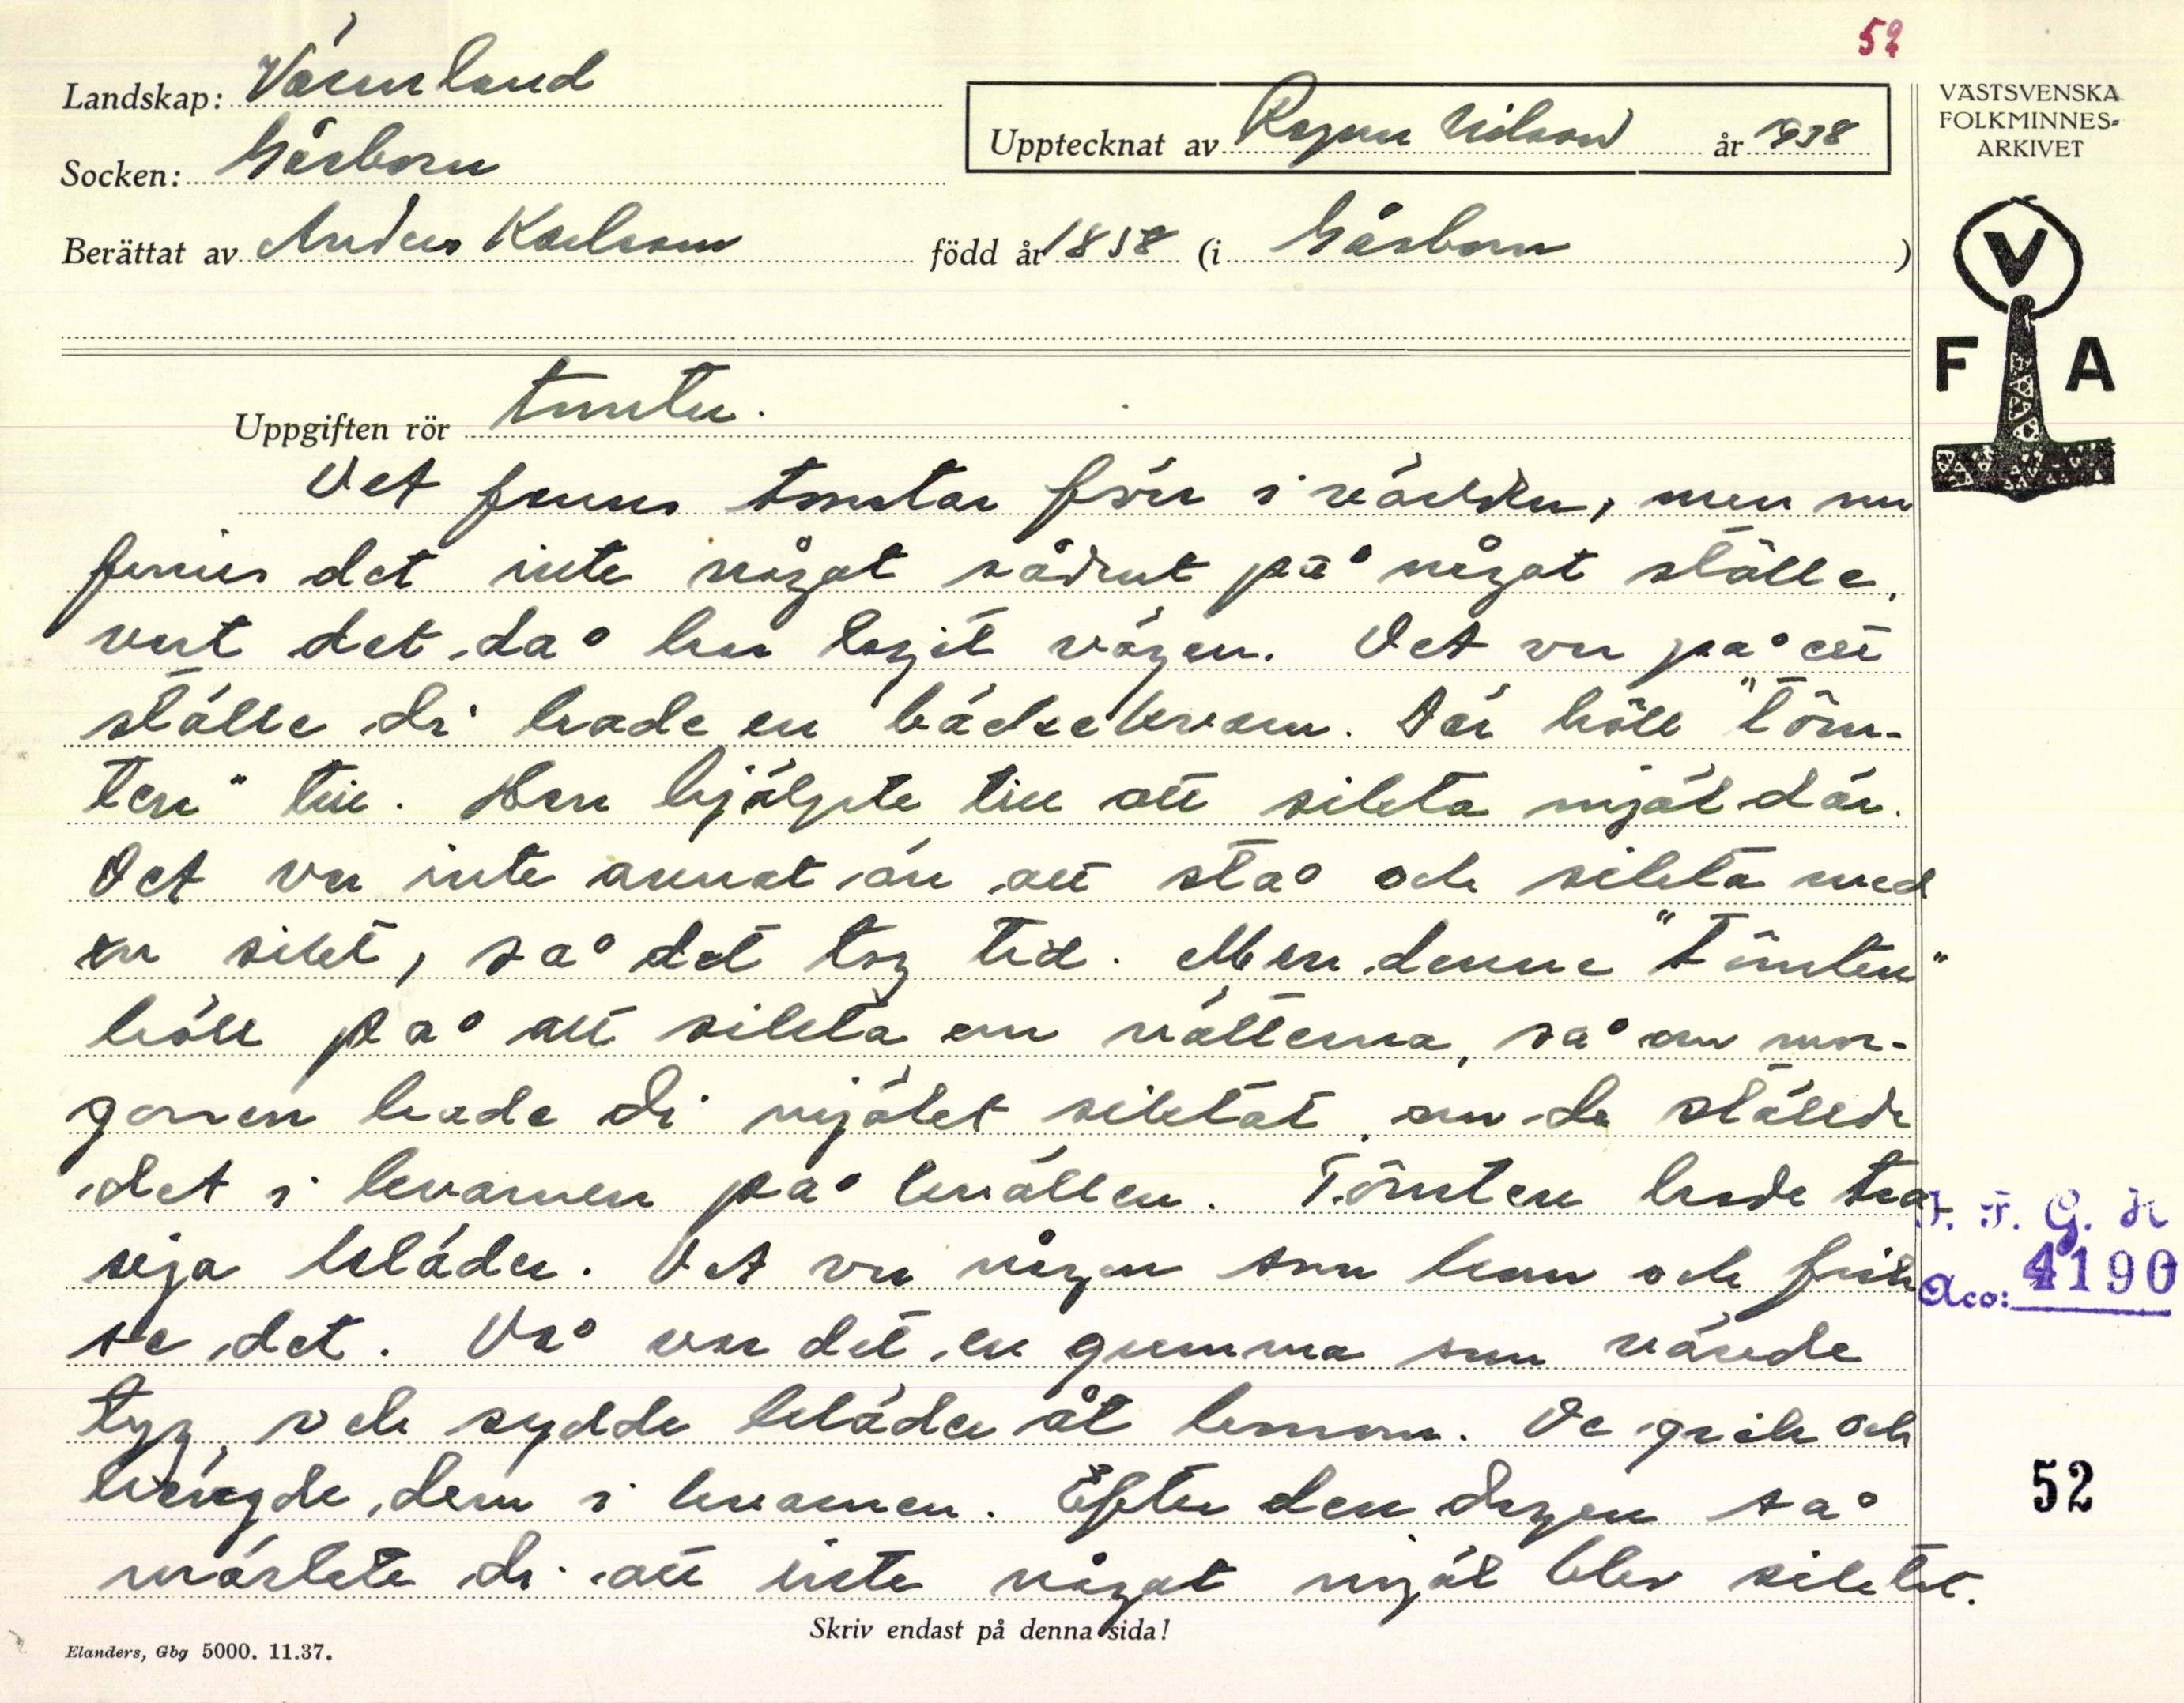 52
Landskap: Värmland
Upptecknat av Ragnar Nilsson år 1938
Socken: Gåsborn
Berättat av Anders Karlsson född år 1858 (i Gåsborn)
VÄSTSVENSKA
FOLKMINNES-
ARKIVET
V
F A
Uppgiften rör tomten.
Det fanns tomtar förr i världen, men nu
finns det inte något sådant på något ställe,
vart det då har tagit vägen. Det var på ett
ställe di hade en bäckekvarn. Där höll "Töm-
ten" till. Han hjälpte till att sikta mjöl där.
Det var inte annat än att stå och sikta med
en sikt, så det tog tid. Men denne "Tömten"
höll på att sikta om nätterna, så om mor-
gonen hade di mjölet siktat, om de ställde
det i kvarnen på kvällen. Tömten hade tra-
siga kläder. Det var någon som kom och fick
se det. Då var det en gumma som vävde
tyg, och sydde kläder åt honom. De gick och
hängde dem i kvarnen. Efter den dagen så
märkte di att inte något mjöl blev siktat.
Skriv endast på denna sida!
Elanders, Gbg 5000. 11.37.
Acc: 4190
52